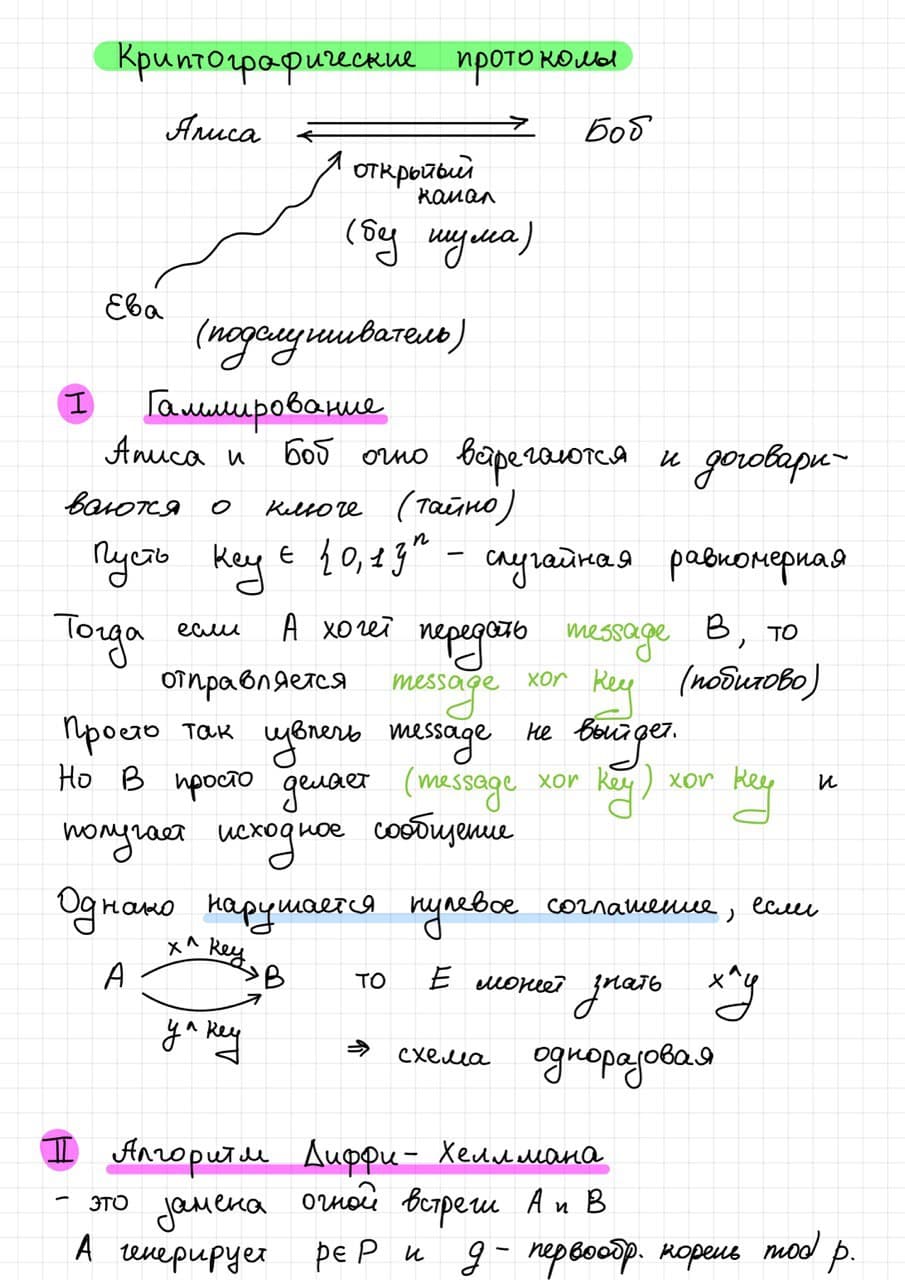 Криптографические протоколы
Алиса Боб
открытый
канал
(без шума)
Ева
(подслушиватель)
I Гаммирование
Алиса и Боб очно встречаются и договари-
ваются о ключе (тайно)
Пусть key ∈ {0,1}ⁿ - случайная равномерная
Тогда если A хочет передать message B, то
отправляется message xor key (побитово)
Просто так извлечь message не выйдет.
Но B просто делает (message xor key) xor key и
получает исходное сообщение
Однако нарушается нулевое соглашение, если
x ^ key
A B то E может знать x^y
y ^ key
⇒ схема одноразовая
II Алгоритм Диффи-Хеллмана
- это замена очной встречи A и B
A генерирует p∈P и g - первообр. корень mod p.